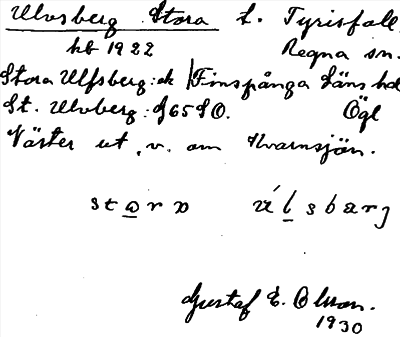 Ulvsberg Stora t. Tyrisfall.
hb 1922 Regna sn.
Stora Ulfsberg: dk Finspånga Läns hd
St. Ulvberg: GG65SO. Ögl
Väster ut, v. om Kvarnsjön.
stɷrɷ úlsbarj
Gustaf E. Olsson.
1930